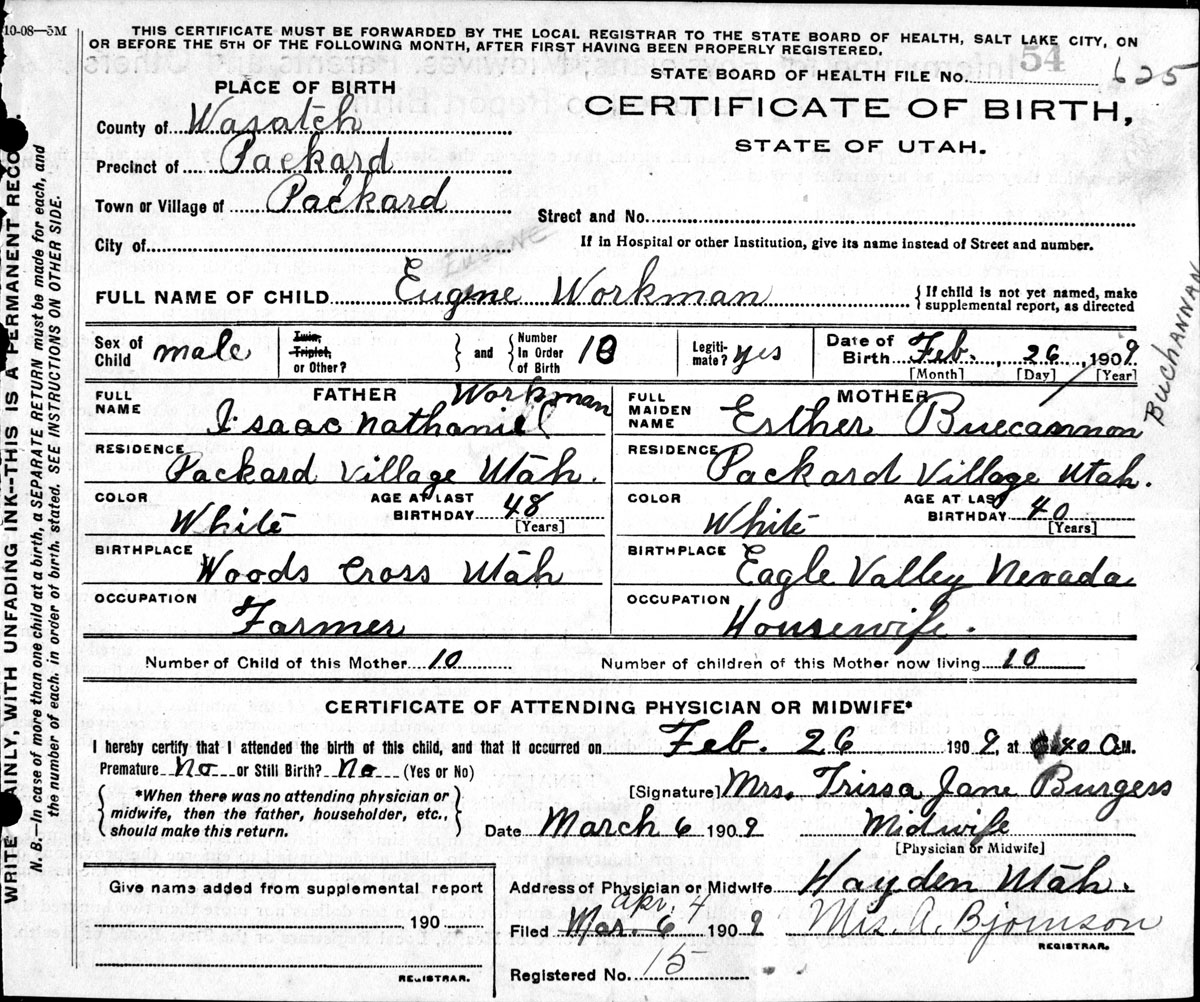 10-08—3M
THIS CERTIFICATE MUST BE FORWARDED BY THE LOCAL REGISTRAR TO THE STATE BOARD OF HEALTH, SALT LAKE CITY, ON
OR BEFORE THE 5TH OF THE FOLLOWING MONTH, AFTER FIRST HAVING BEEN PROPERLY REGISTERED.
54
STATE BOARD OF HEALTH FILE NO. 625
PLACE OF BIRTH
CERTIFICATE OF BIRTH,
STATE OF UTAH.
County of Wasatch
Precinct of Packard
Town or Village of Packard
Street and No.
City of
If in Hospital or other Institution, give its name instead of Street and number.
EUGENE
FULL NAME OF CHILD Eugene Workman
{If child is not yet named, make
supplemental report, as directed
Sex of Child male
Twin, Triplet, or Other? } and { Number In Order of Birth 10
Legitimate? yes
Date of Birth Feb. 26, 1909
[Month] [Day] [Year]
BUCHANNAN
FATHER
FULL NAME Isaac Nathaniel Workman
RESIDENCE Packard Village Utah.
COLOR White
AGE AT LAST BIRTHDAY 48 [Years]
BIRTHPLACE Woods Cross Utah
OCCUPATION Farmer
MOTHER
FULL MAIDEN NAME Esther Buecannon
RESIDENCE Packard Village Utah.
COLOR White
AGE AT LAST BIRTHDAY 40 [Years]
BIRTHPLACE Eagle Valley Nevada
OCCUPATION Housewife.
Number of Child of this Mother 10 Number of children of this Mother now living 10
CERTIFICATE OF ATTENDING PHYSICIAN OR MIDWIFE*
I hereby certify that I attended the birth of this child, and that it occurred on Feb. 26 1909, at 40 A.M.
Premature No or Still Birth? No (Yes or No)
[Signature] Mrs. Trissa Jane Burgess
{ *When there was no attending physician or
midwife, then the father, householder, etc.,
should make this return. }
Date March 6 1909 Midwife
[Physician or Midwife]
Give name added from supplemental report
190
REGISTRAR.
Address of Physician or Midwife Hayden Utah.
Apr. 4
Filed Mar. 6 1909 Mrs. A. Bjornson
REGISTRAR.
Registered No. 15
WRITE PLAINLY, WITH UNFADING INK--THIS IS A PERMANENT RECO
N. B.—In case of more than one child at a birth, a SEPARATE RETURN must be made for each, and
the number of each, in order of birth, stated. SEE INSTRUCTIONS ON OTHER SIDE.